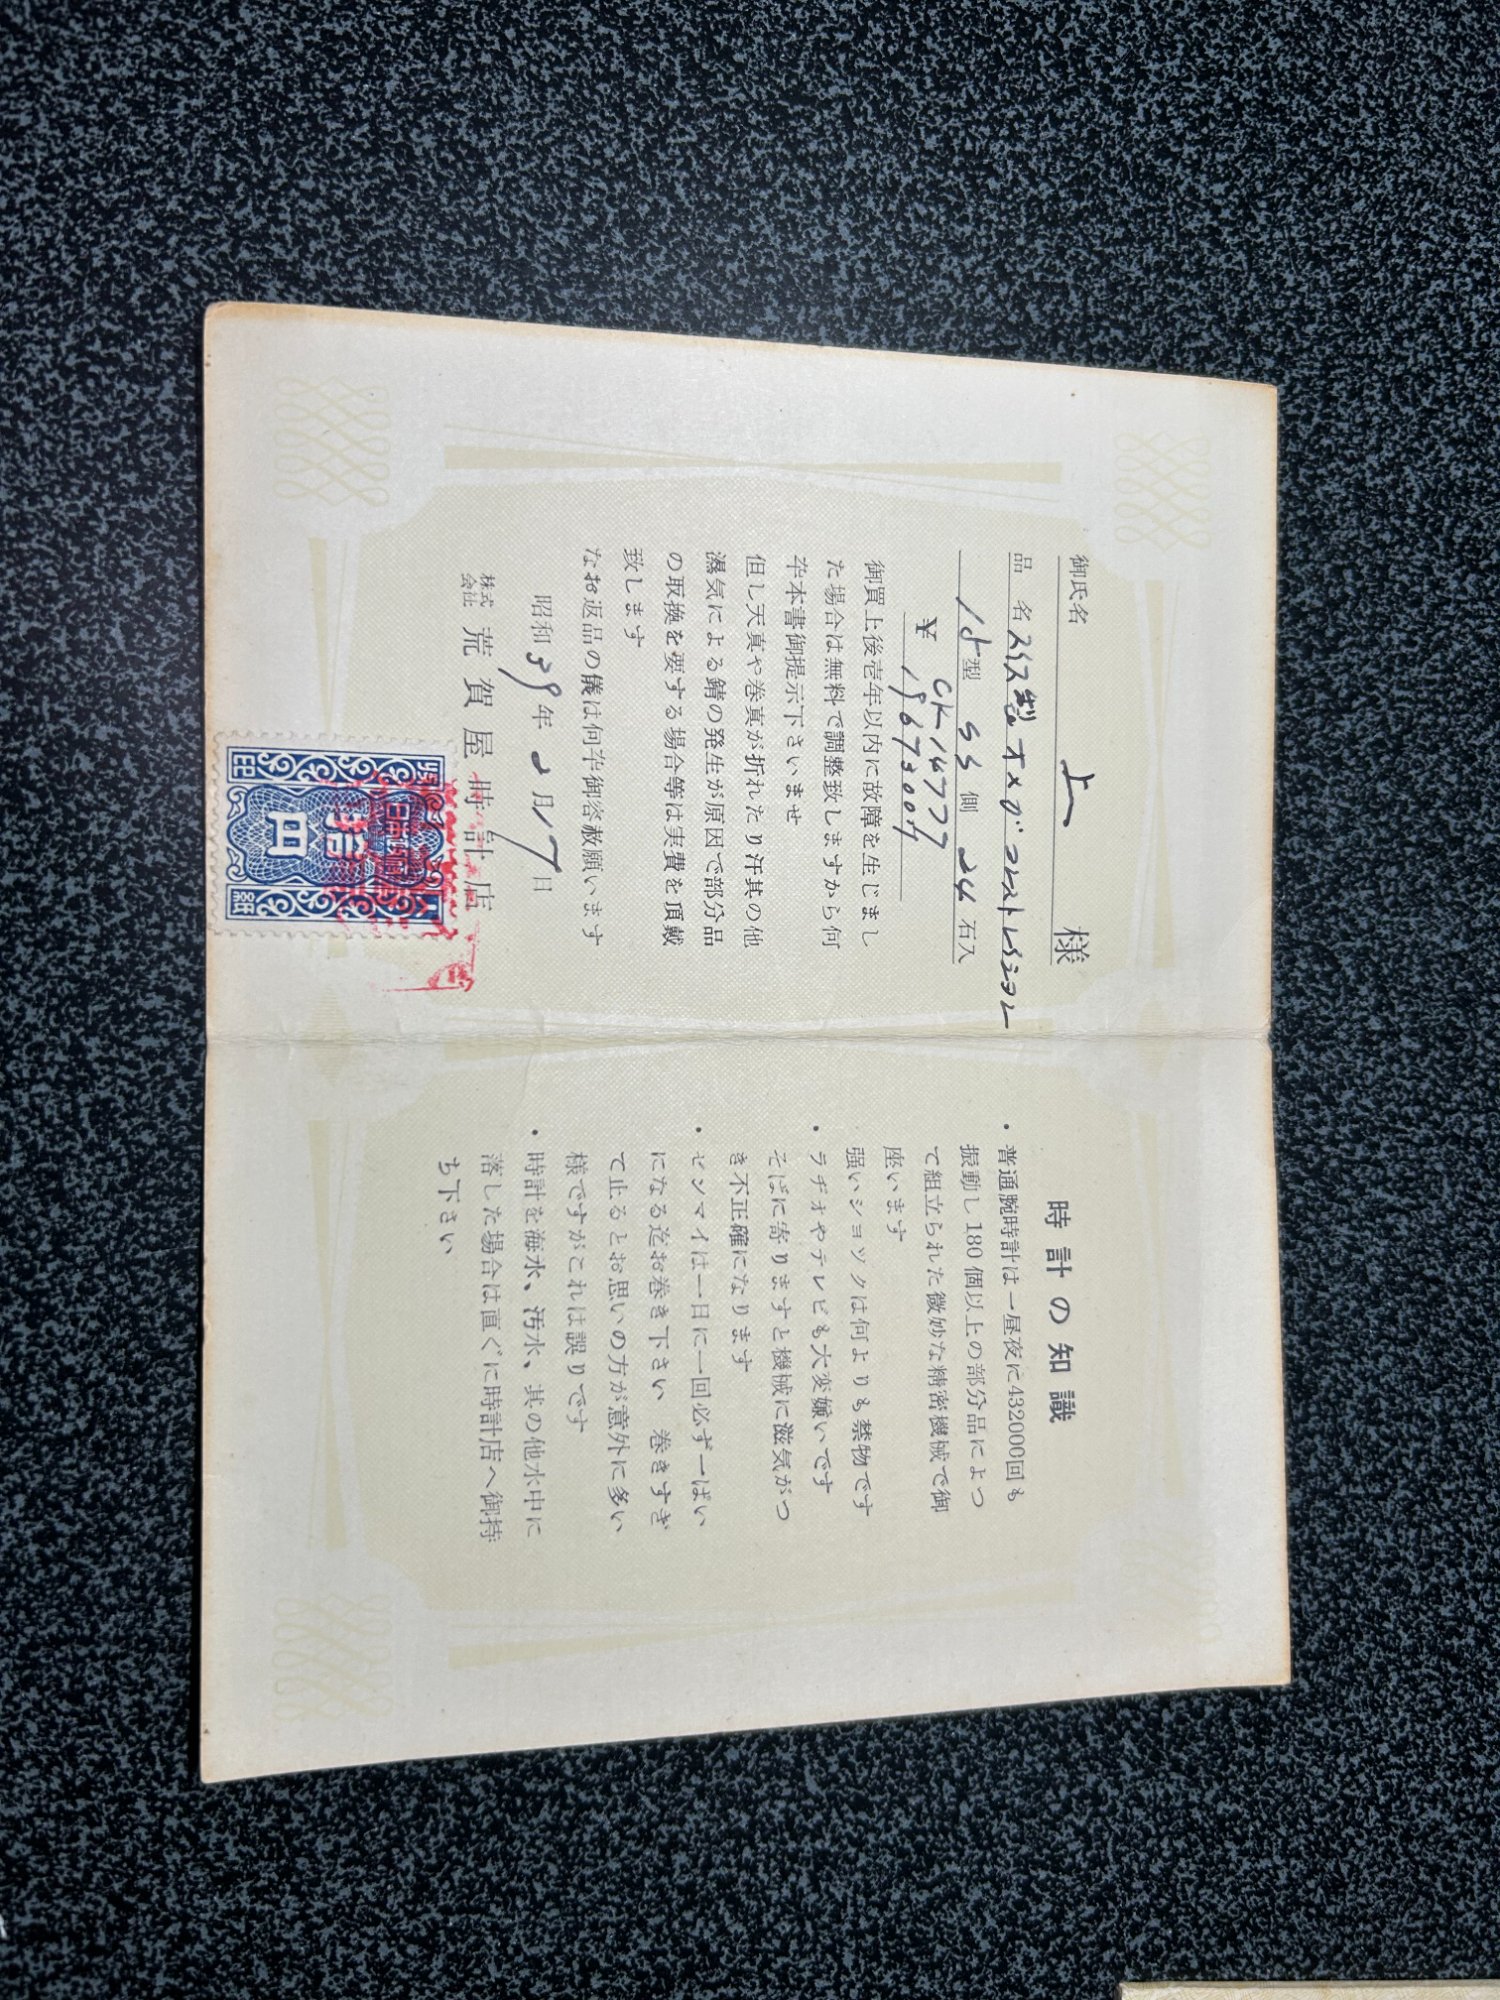 御氏名 上 様
品名 スイス製オメガコンストレイション
1ケ型 SS側 24石入
CK-14777
¥ 19673004
御買上後壱年以内に故障を生じまし
た場合は無料で調整致しますから何
卒本書御提示下さいませ
但し天真や巻真が折れたり汗其の他
濕気による錆の発生が原因で部分品
の取換を要する場合等は実費を頂戴
致します
なお返品の儀は何卒御容赦願います
昭和39年2月17日
株式会社 荒賀屋時計店
収入印紙
拾円
時計の知識
・普通腕時計は一昼夜に432000回も
振動し180個以上の部分品によつ
て組立られた微妙な精密機械で御
座います
強いショックは何よりも禁物です
・ラヂオやテレビも大変嫌いです
そばに寄りますと機械に滋気がつ
き不正確になります
・ゼンマイは一日に一回必ず一ぱい
になる迄お巻き下さい 巻きすぎ
て止るとお思いの方が意外に多い
様ですがこれは誤りです
・時計を海水、汚水、其の他水中に
落した場合は直ぐに時計店へ御持
ち下さい